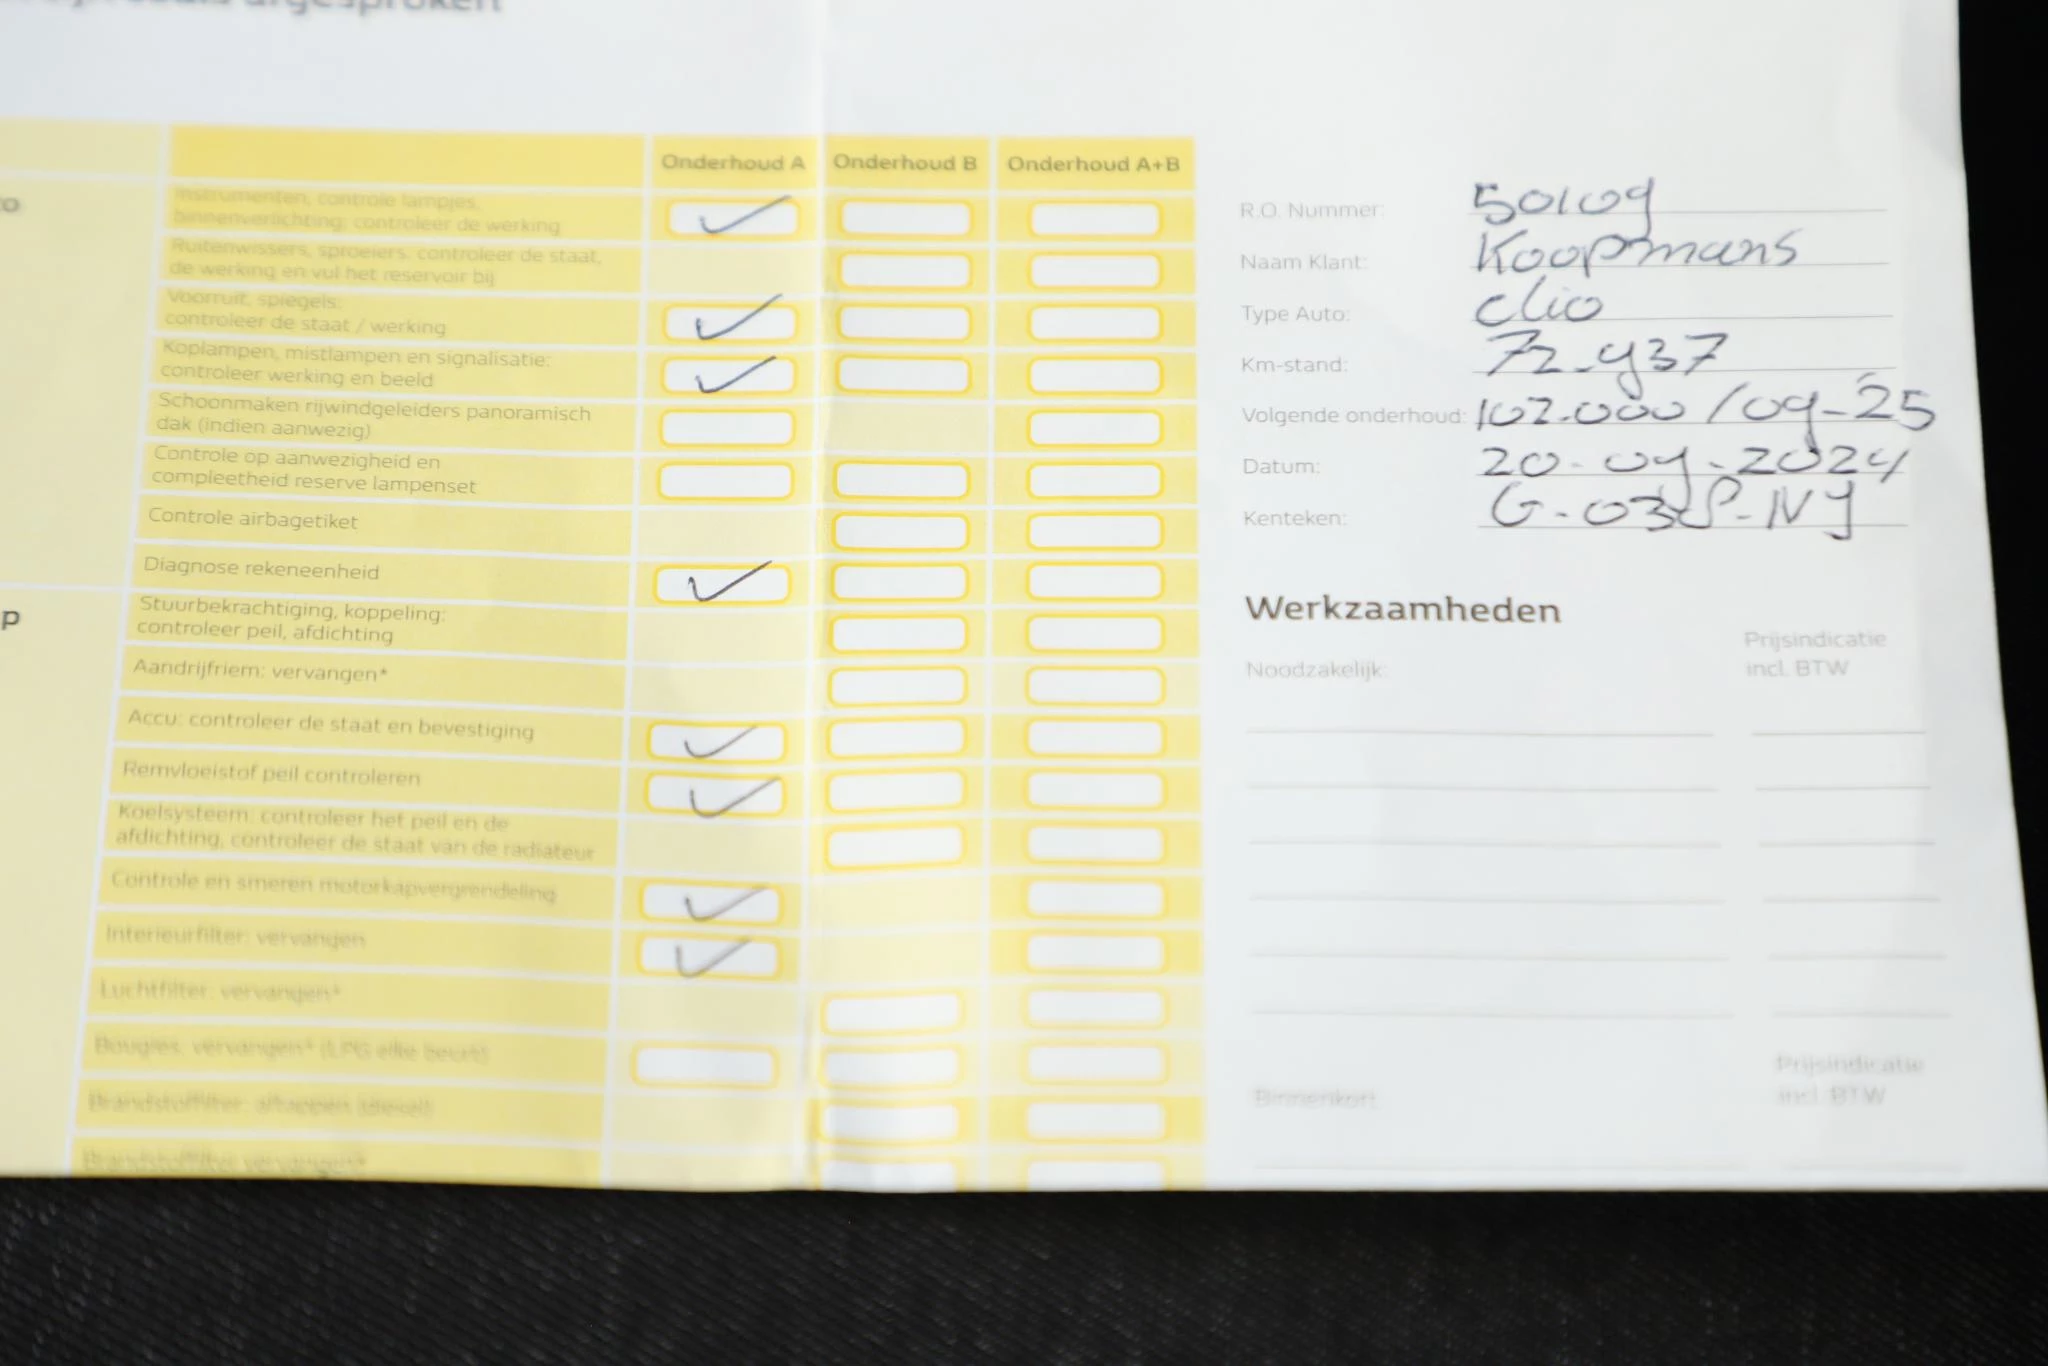 afgesproken
Onderhoud A Onderhoud B Onderhoud A+B
Instrumenten, controle lampjes,
binnenverlichting: controleer de werking
Ruitenwissers, sproeiers: controleer de staat,
de werking en vul het reservoir bij
Voorruit, spiegels:
controleer de staat / werking
Koplampen, mistlampen en signalisatie:
controleer werking en beeld
Schoonmaken rijwindgeleiders panoramisch
dak (indien aanwezig)
Controle op aanwezigheid en
compleetheid reserve lampenset
Controle airbagetiket
Diagnose rekeneenheid
p
Stuurbekrachtiging, koppeling:
controleer peil, afdichting
Aandrijfriem: vervangen*
Accu: controleer de staat en bevestiging
Remvloeistof peil controleren
Koelsysteem: controleer het peil en de
afdichting, controleer de staat van de radiateur
Controle en smeren motorkapvergrendeling
Interieurfilter: vervangen
Luchtfilter: vervangen*
Bougies: vervangen* (LPG elke beurt)
Brandstoffilter: aftappen (diesel)
Brandstoffilter vervangen*
R.O. Nummer: 50109
Naam Klant: Koopmans
Type Auto: Clio
Km-stand: 72.937
Volgende onderhoud: 102.000 / 09-25
Datum: 20-09-2024
Kenteken: G-035-NJ
Werkzaamheden
Noodzakelijk:
Prijsindicatie
incl. BTW
Binnenkort
Prijsindicatie
incl. BTW